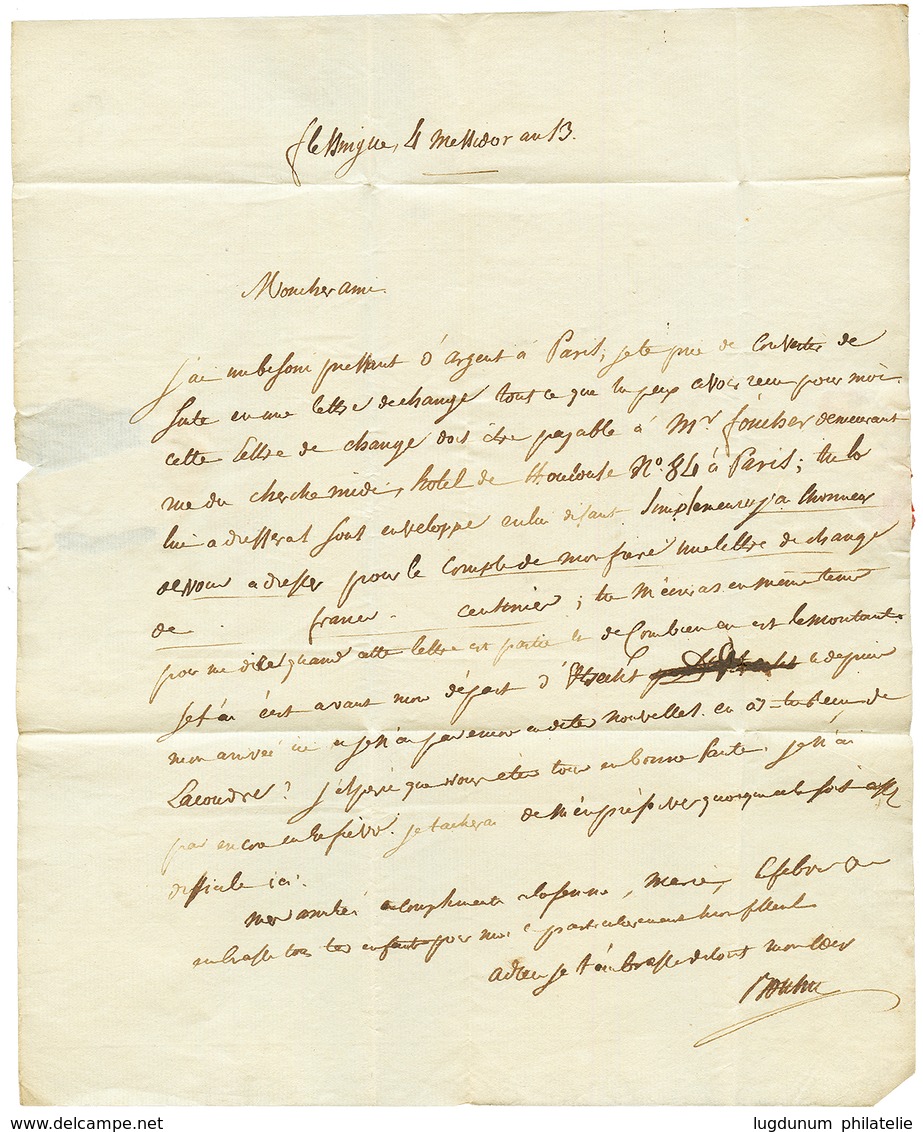 flessingue, 4 messidor an 13.
Mon cher ami.
j'ai un besoin pressant d'argent à Paris, je te prie de convertir de
suite en une lettre de change tout ce que tu peux avoir reçu pour moi.
cette lettre de change doit être payable à Mr. foucher demeurant
rue du cherche midi, hotel de Toulouse No. 84 à Paris; tu la
lui adresseras sous enveloppe en lui disant simplement j'ai l'honneur
de vous adresser pour le compte de mon frere une lettre de change
de francs centimes; tu m'écriras en même tems
pour me dire quand cette lettre est partie et de combien en est le montant.
je t'ai écrit avant mon départ d'Utrecht et depuis
mon arrivée ici et je n'ai pas encore eu de tes nouvelles. en as-tu reçu de
Lacoudre? j'espère que vous êtes tous en bonne santé. je n'ai
pas encore eu la fièvre. je tacherai de m'en préserver quoique cela soit assez
difficile ici.
mes amitiés et complimens à la femme, Marie, Lefebvre
embrasse tous tes enfants pour moi et particulièrement mon filleul
adieu je t'embrasse de tout mon cœur